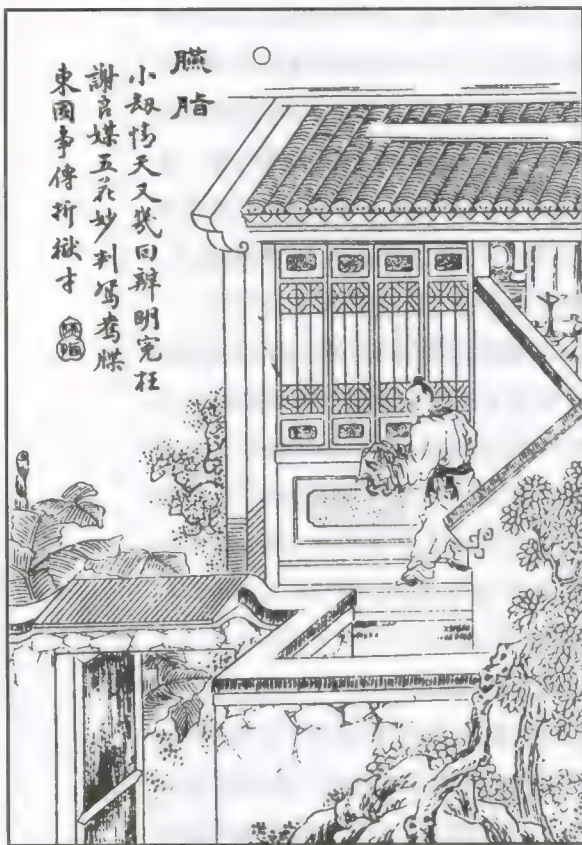 臙脂
小刼情天又幾回辨明冤枉
謝良媒五花妙判寫鴛牒
東國爭傳折獄才